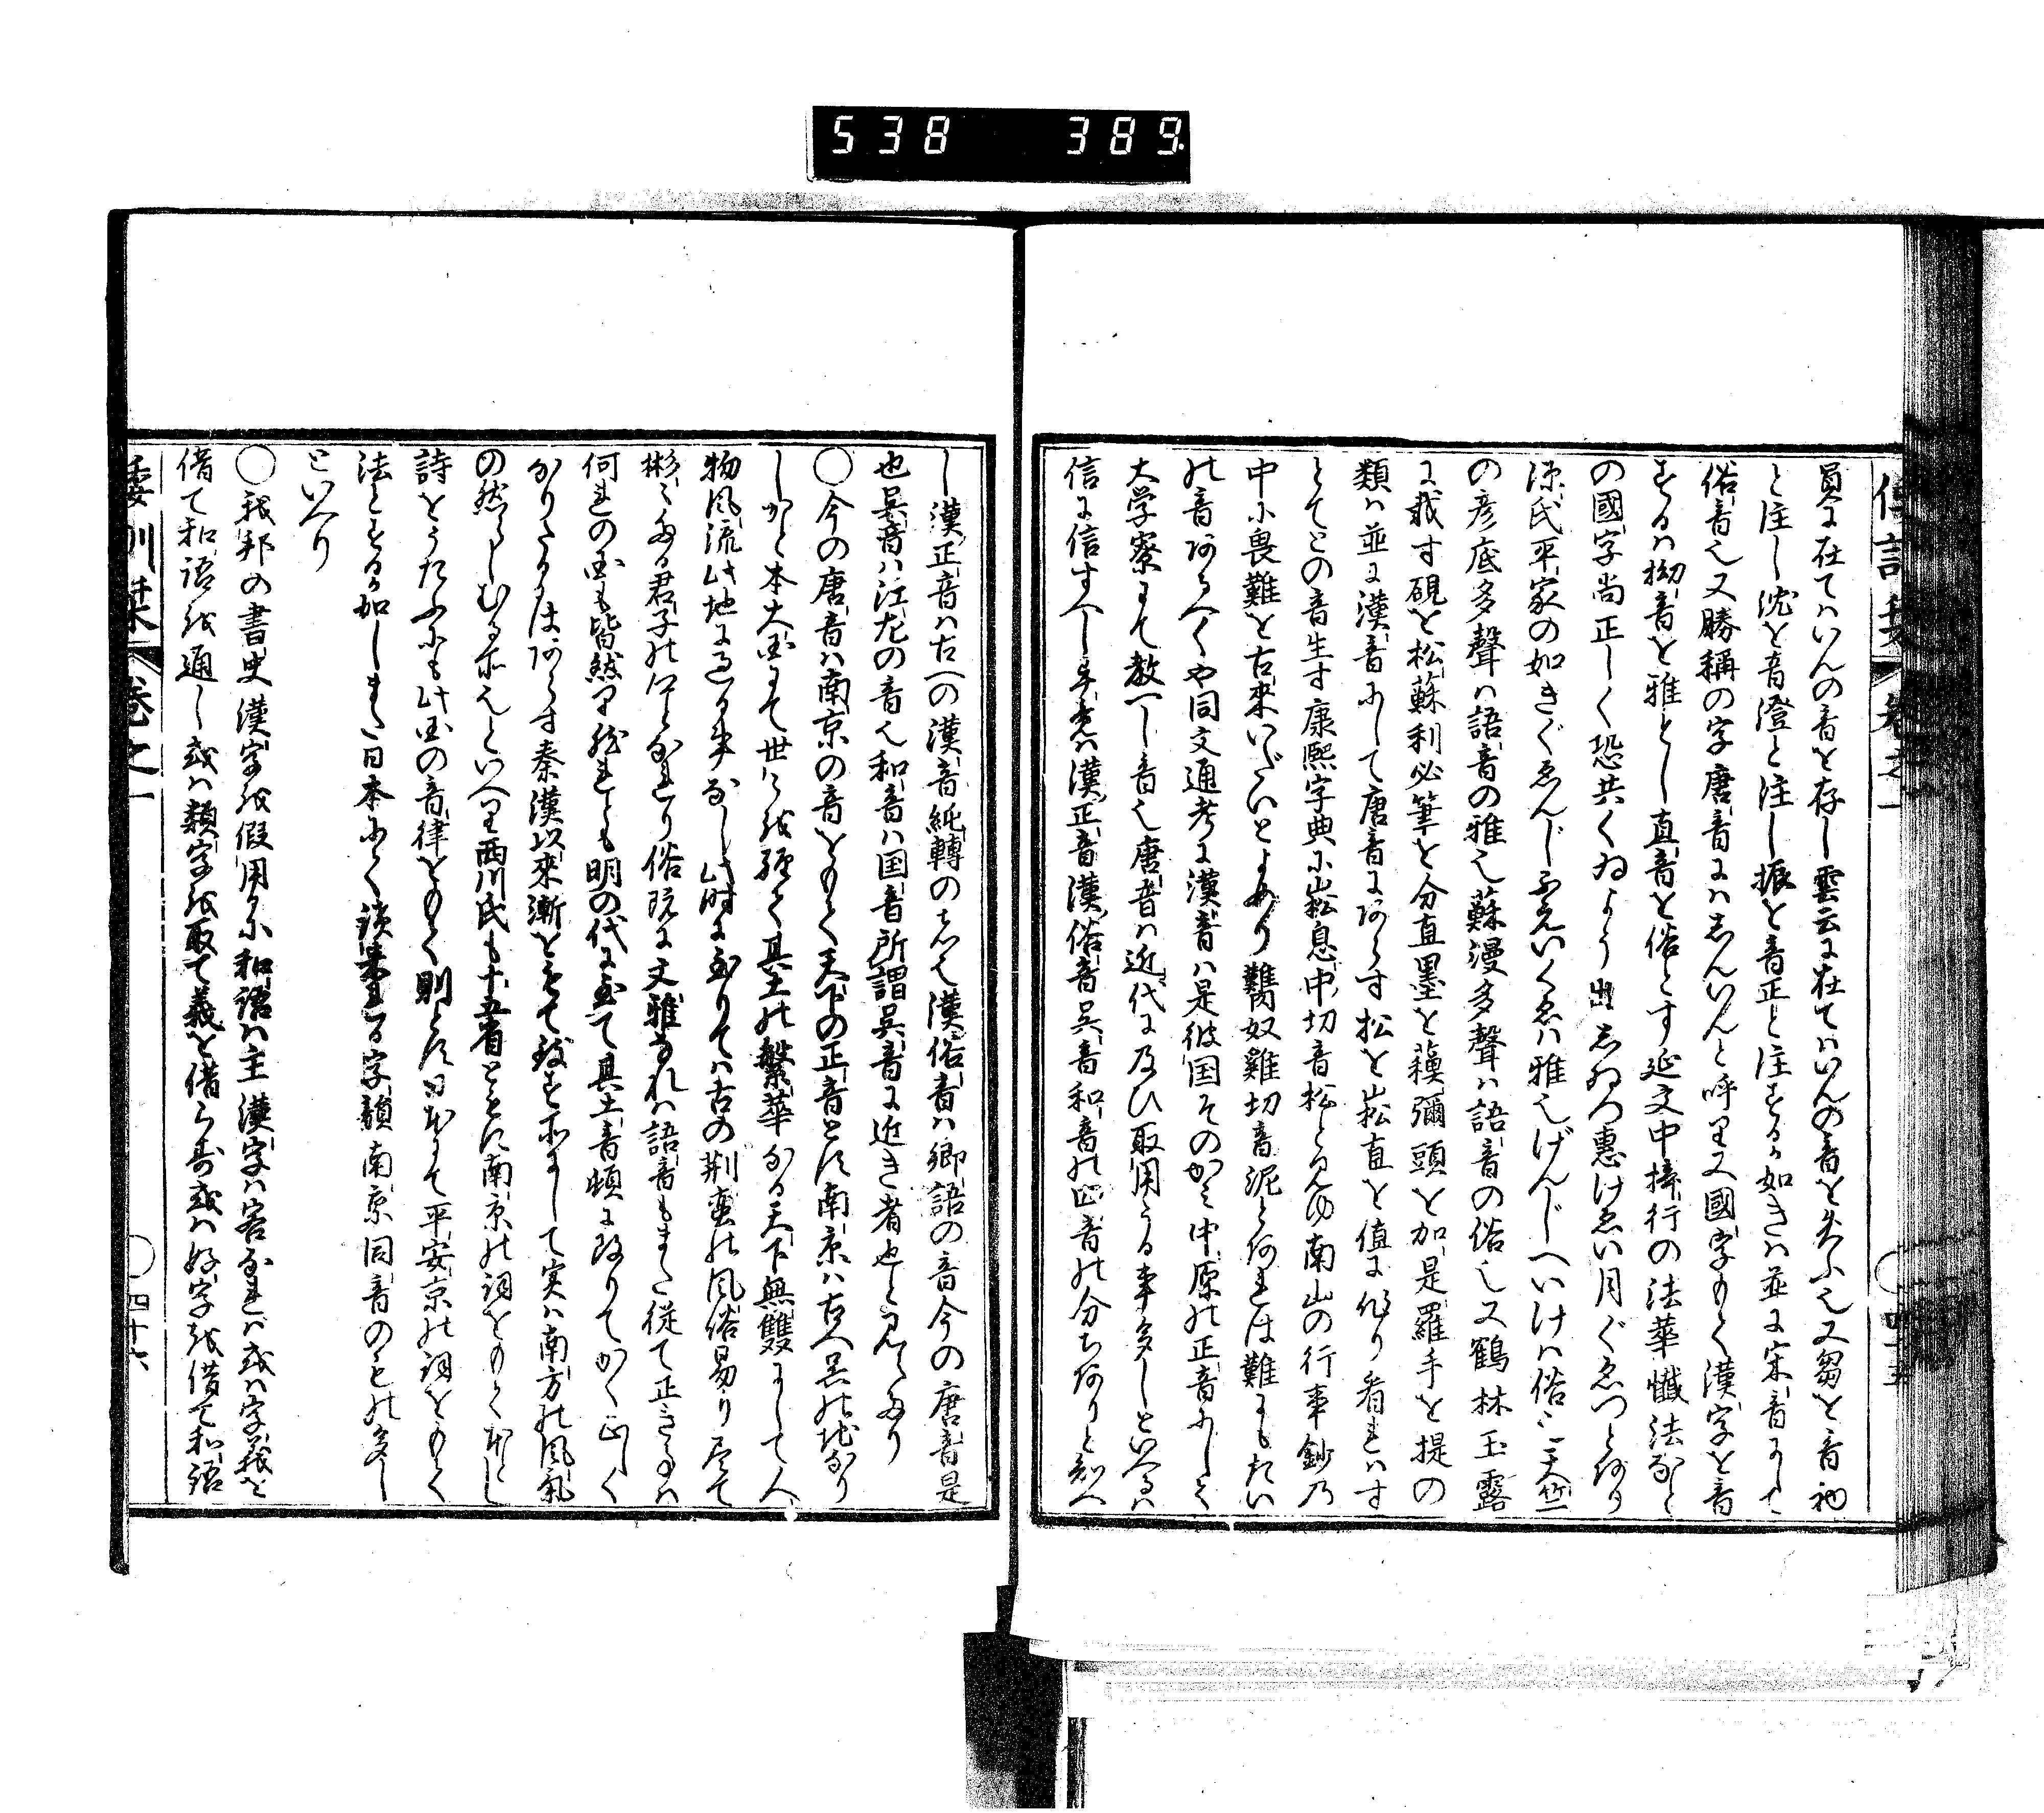 538 389
員に在てはいんの音を存し雲云に在てはいんの音を失ふ也又芻を音初
と注し沈を音澄と注し振を音正と注するか如きは並に宋音にして
俗音也又勝稱の字唐音にはしんいんと呼り又國字もて漢字を音
するは拗音を雅とし直音を俗とす延文中捧行の法華懺法など
の國字尚正しく恐共くゐよう出しゆつ惠けゑい月ぐゑつとあり
源氏平家の如きぐゑんじふえいくゑは雅也げんじへいけは俗也天竺
の彦底多聲は語音の雅也蘇漫多聲は語音の俗也又鶴林玉露
に我す硯を松蘇利必筆を分直墨を蘓彌頭を加是羅手を提の
類は並に漢音にして唐音にあらす松を崧直を值に作り看れはす
とてとの音生す康熙字典に崧息中切音松と見ゆ南山の行事鈔乃
中に畏難を古來いだいとよめり難奴雞切音泥とあれは難にもたい
の音あるへくや同文通考に漢音は是彼国そのかミ中原の正音にして
大学寮にて教へし音也唐音は近代に及ひ取用うる事多しといへるは
信に信すへし是漢正音漢俗音呉音和音の四音の分ちありと知へ
し漢正音は古への漢音純轉のもの也漢俗音は鄉語の音今の唐音是
也呉音は江左の音也和音は国音所謂呉音に近き者也と見えたり
○今の唐音は南京の音をもて天下の正音とす南京は古へ呉の地なり
しかと本大国にて世々を經て其土の繁華なる天下無雙にして人
物風流此地に過る事なし此時に至りては古の荆蛮の風俗易り尽て
彬々たる君子の徑となれり俗既に文雅なれは語音もまた従て正きなり
何れの国も皆然り然れとも明の代に至て其土音頓に改りてかく正しく
なりたるにはあらす秦漢以來漸をもて致す所にして実は南方の風氣
の然らしむる所也といへり西川氏も十五省ともに南京の詞をもて本とし
詩をうたふにも此国の音律をもて則とす日本にて平安京の詞をもて
法とするか如しまた日本にて讀来れる字韻南京同音のもの多し
といへり
○我邦の書史漢字を假用るに和語は主漢字は客なれば或は字義を
借て和語を通し或は類字を取て義を借らす或は好字を借て和語
倭訓栞 卷之一 ○四十六